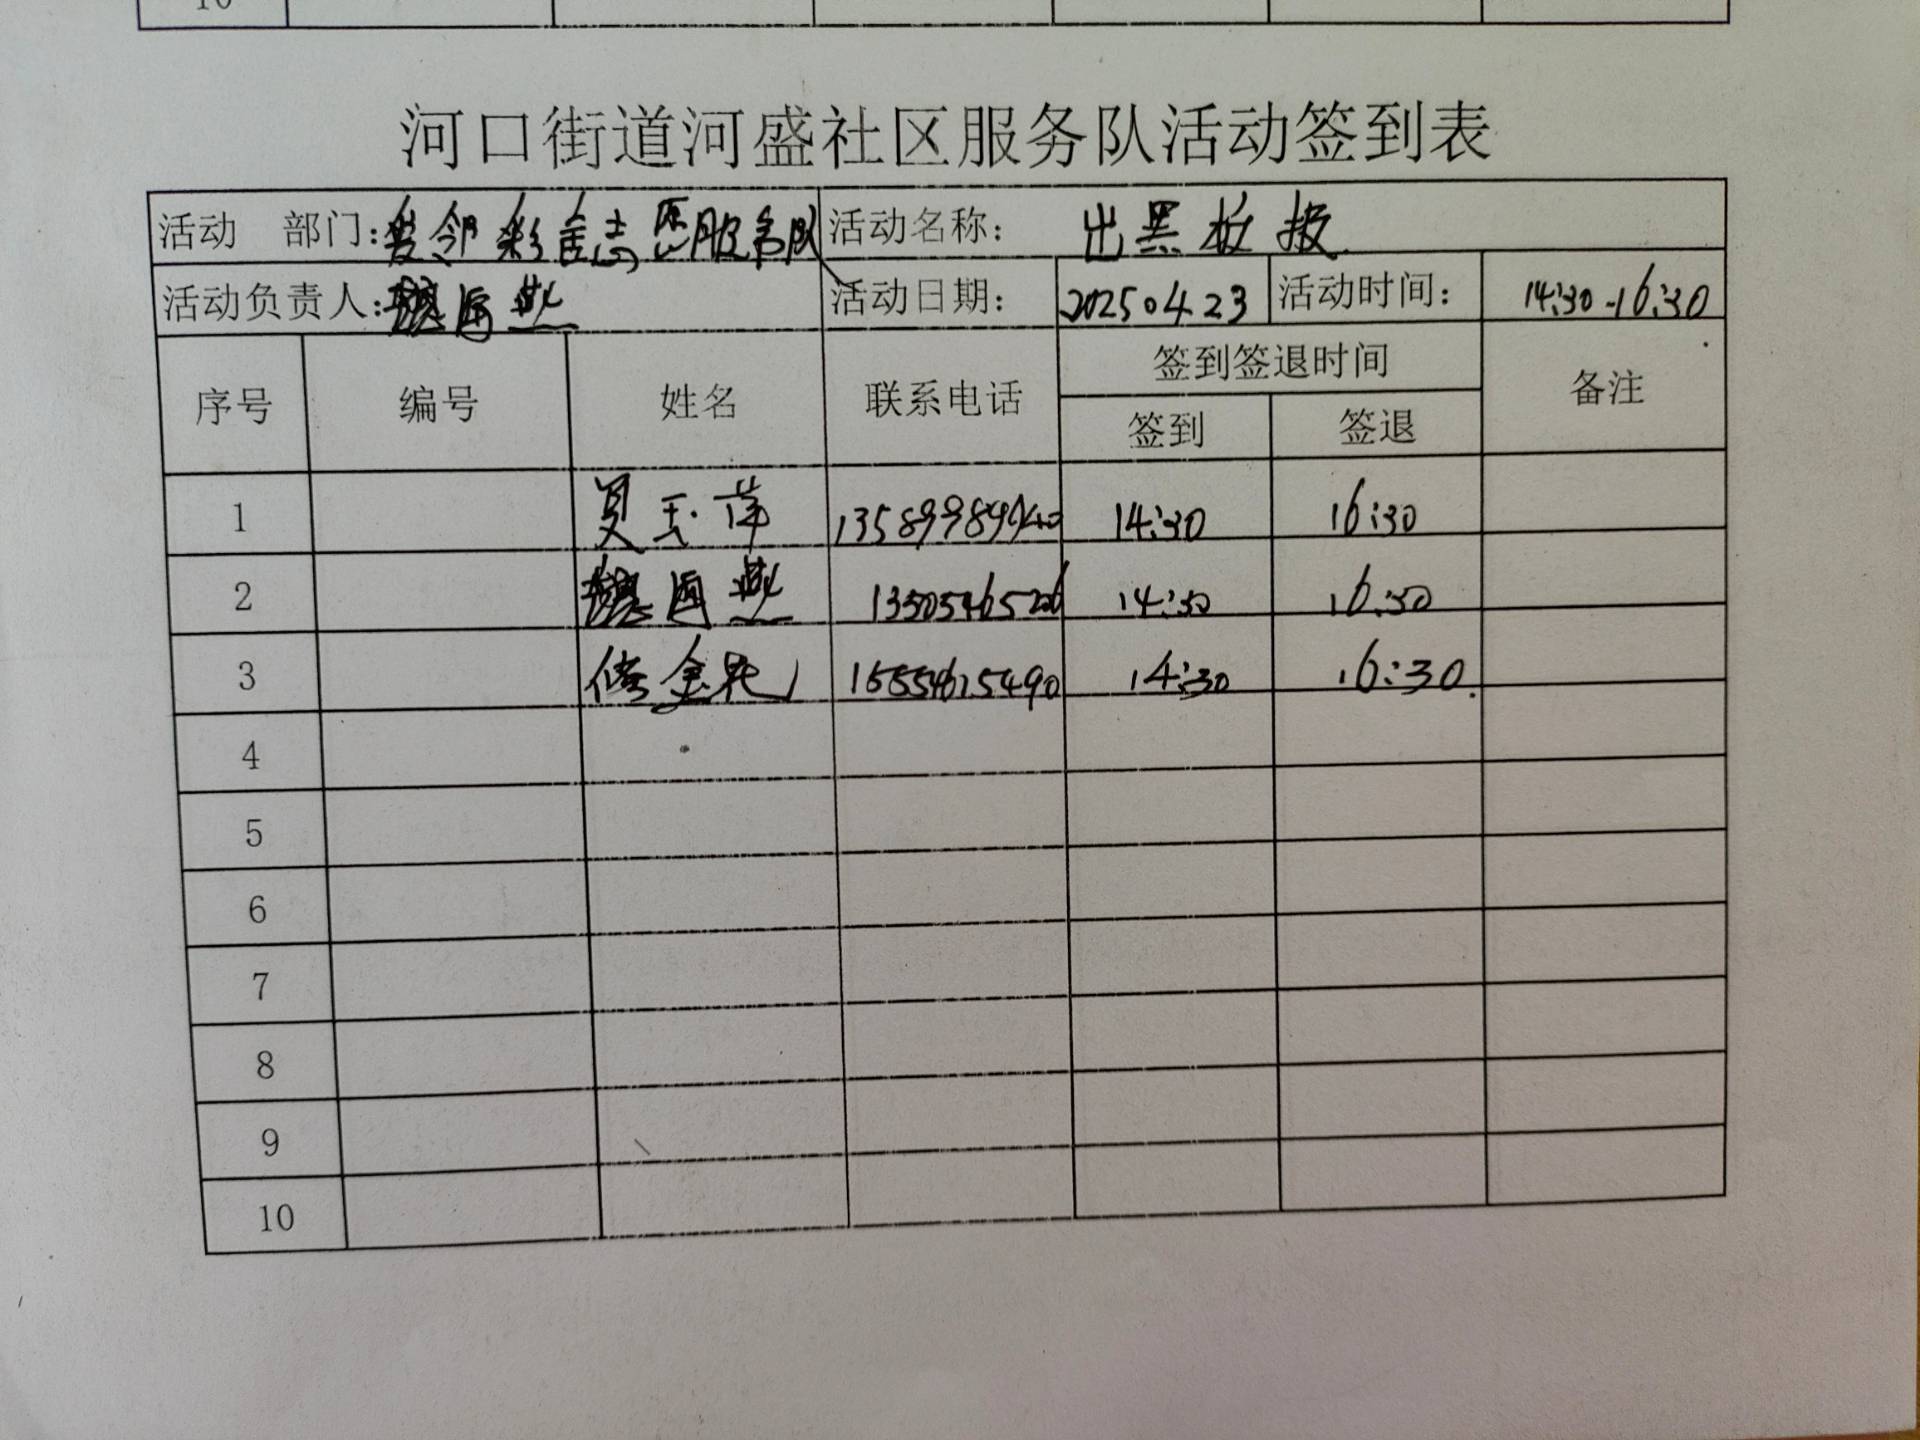 10
河口街道河盛社区服务队活动签到表
活动 部门:爱邻彩虹志愿服务队 活动名称: 出黑板报
活动负责人: 活动日期: 20250423 活动时间: 14:30-16:30
序号 编号 姓名 联系电话 签到签退时间 备注
签到 签退
1 夏玉萍 14:30 16:30
2 14:30 16:30
3 14:30 16:30
4
5
6
7
8
9
10